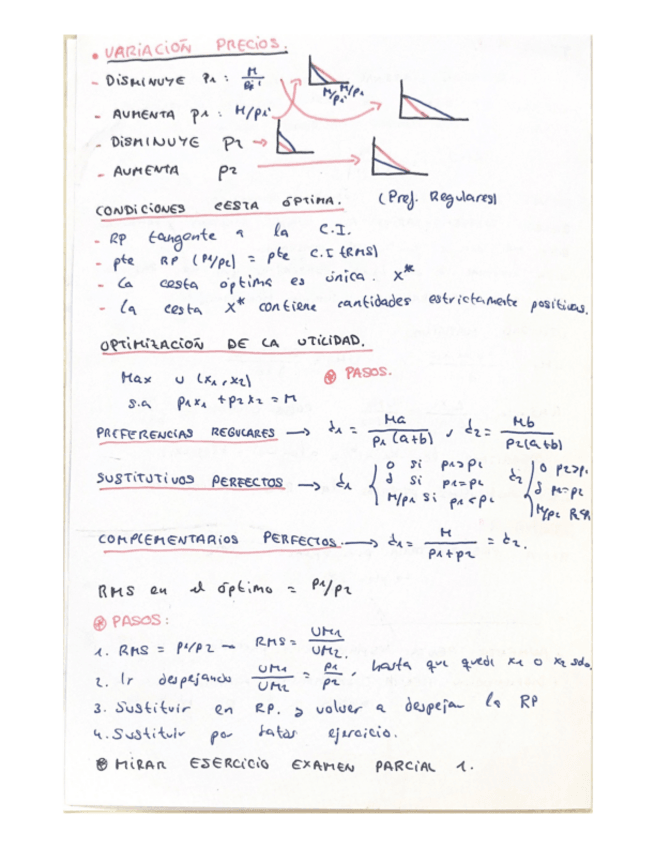 • VARIACIÓN PRECIOS.
- DISMINUYE P1 : M
- AUMENTA P1 : M/P1' M/P1' M/P1
- DISMINUYE P2 →
- AUMENTA P2
CONDICIONES CESTA ÓPTIMA. (Pref. Regulares)
- RP tangente a la C.I.
- pte RP (P1/P2) = pte C.I (RMS)
- La cesta óptima es única. X*
- La cesta X* contiene cantidades estrictamente positivas.
OPTIMIZACIÓN DE LA UTILIDAD.
Max U (x1, x2) ⊛ PASOS.
s.a P1x1 + P2x2 = M
PREFERENCIAS REGULARES → d1 = Ma / P1(a+b) , d2 = Mb / P2(a+b)
SUSTITUTIVOS PERFECTOS → d1 { 0 si P1>P2 d2 { 0 P2>P1
d si P1=P2 d P1=P2
M/P1 si P1<P2 M/P2
COMPLEMENTARIOS PERFECTOS. → d1 = M / P1+P2 = d2.
RMS en el óptimo = P1/P2
⊛ PASOS:
1. RMS = P1/P2 → RMS = UM1 / UM2.
2. Ir despejando UM1 / UM2 = P1 / P2, hasta que quede x1 o x2 solo.
3. Sustituir en RP. y volver a despejar la RP
4. Sustituir por datos ejercicio.
⊛ MIRAR ESERCICIO EXAMEN PARCIAL 1.